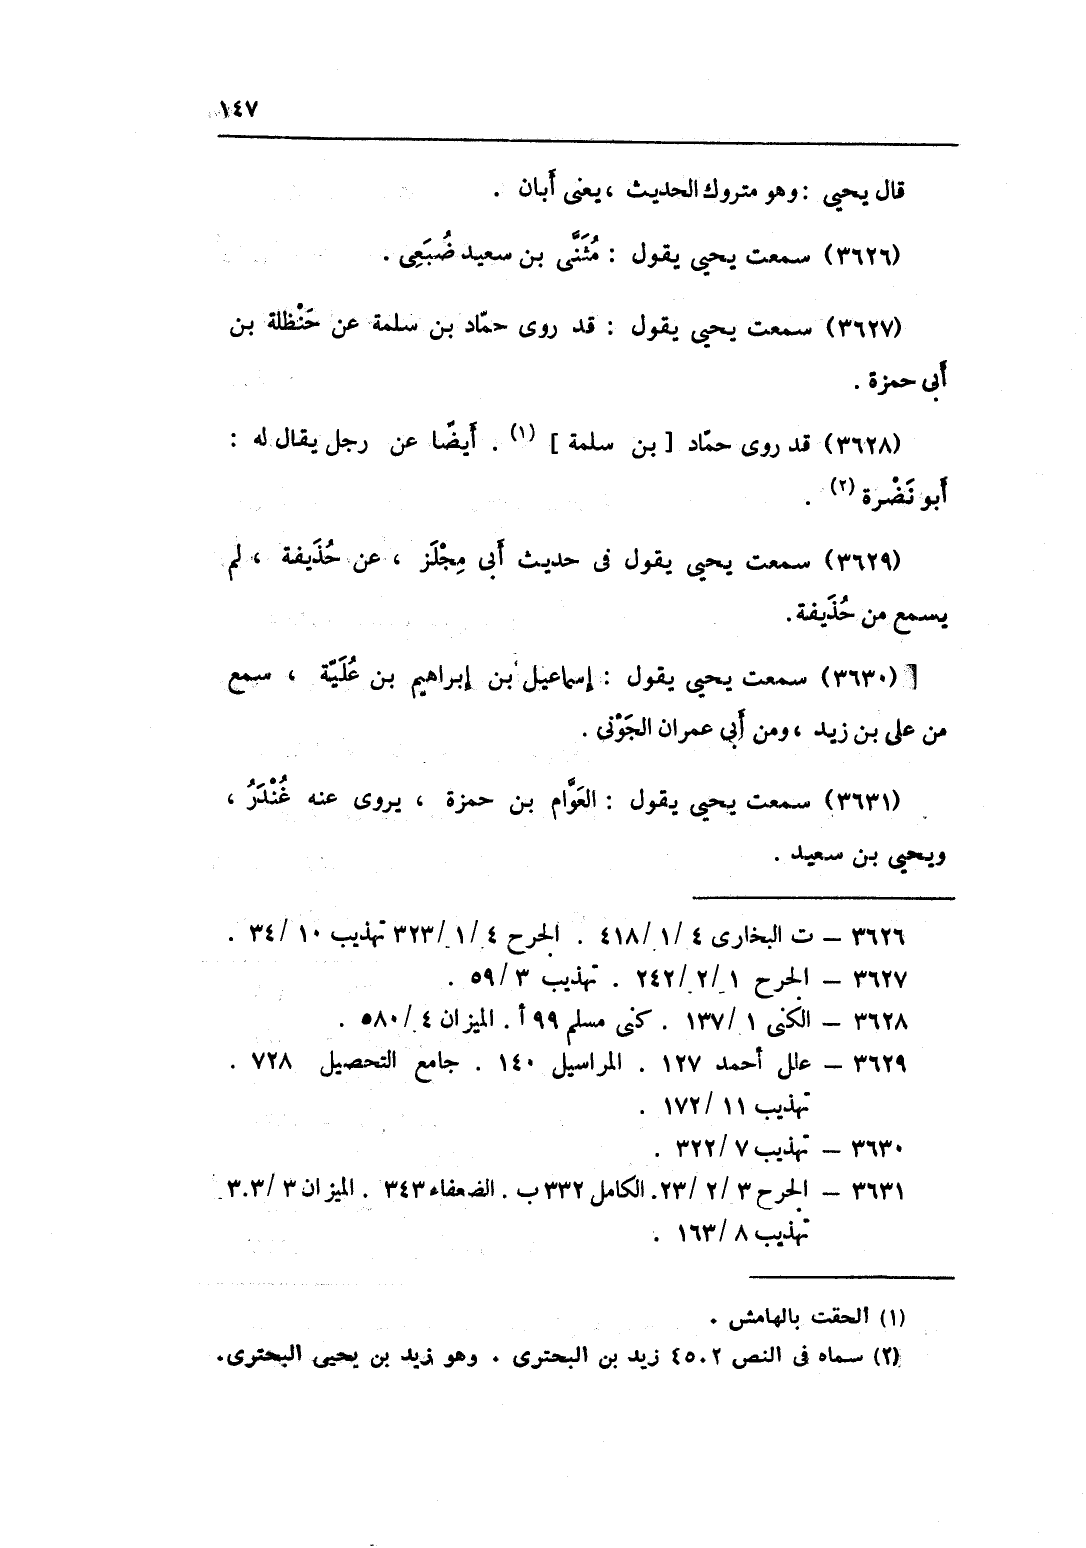 ١٤٧
قال يحيى : وهو متروك الحديث ، يعنى أَبان .
(٣٦٢٦) سمعت يحيى يقول : مُثَنَّى بن سعيد ضُبَعِى .
(٣٦٢٧) سمعت يحيى يقول : قد روى حمّاد بن سلمة عن حَنْظلة بن
أَبى حمزة .
(٣٦٢٨) قد روى حمّاد [ بن سلمة ] (١) . أَيضًا عن رجل يقال له :
أَبو نَضْرة (٢) .
(٣٦٢٩) سمعت يحيى يقول فى حديث أَبى مِجْلَز ، عن حُذَيفة ، لم
يسمع من حُذَيفة .
(٣٦٣٠) سمعت يحيى يقول : إسماعيل بن إبراهيم بن عُلَيّة ، سمع
من على بن زيد ، ومن أَبى عمران الجَوْنى .
(٣٦٣١) سمعت يحيى يقول : العَوَّام بن حمزة ، يروى عنه غُنْدَرُ ،
ويحيى بن سعيد .
٣٦٢٦ – ت البخارى ٤ /١/ ٤١٨ . الجرح ٤ /١/ ٣٢٣ تهذيب ١٠ /٣٤ .
٣٦٢٧ – الجرح ١ /٢/ ٢٤٢ . تهذيب ٣ /٥٩ .
٣٦٢٨ – الكنى ١ /١٣٧ . كنى مسلم ٩٩ أ . الميزان ٤ /٥٨٠ .
٣٦٢٩ – علل أحمد ١٢٧ . المراسيل ١٤٠ . جامع التحصيل ٧٢٨ .
تهذيب ١١ /١٧٢ .
٣٦٣٠ – تهذيب ٧ /٣٢٢ .
٣٦٣١ – الجرح ٣ /٢ /٢٣. الكامل ٣٣٢ ب . الضعفاء ٣٤٣ . الميزان ٣ /٣٠٣ .
تهذيب ٨ /١٦٣ .
(١) ألحقت بالهامش .
(٢) سماه فى النص ٤٥٠٢ زيد بن البحترى . وهو زيد بن يحيى البحترى .